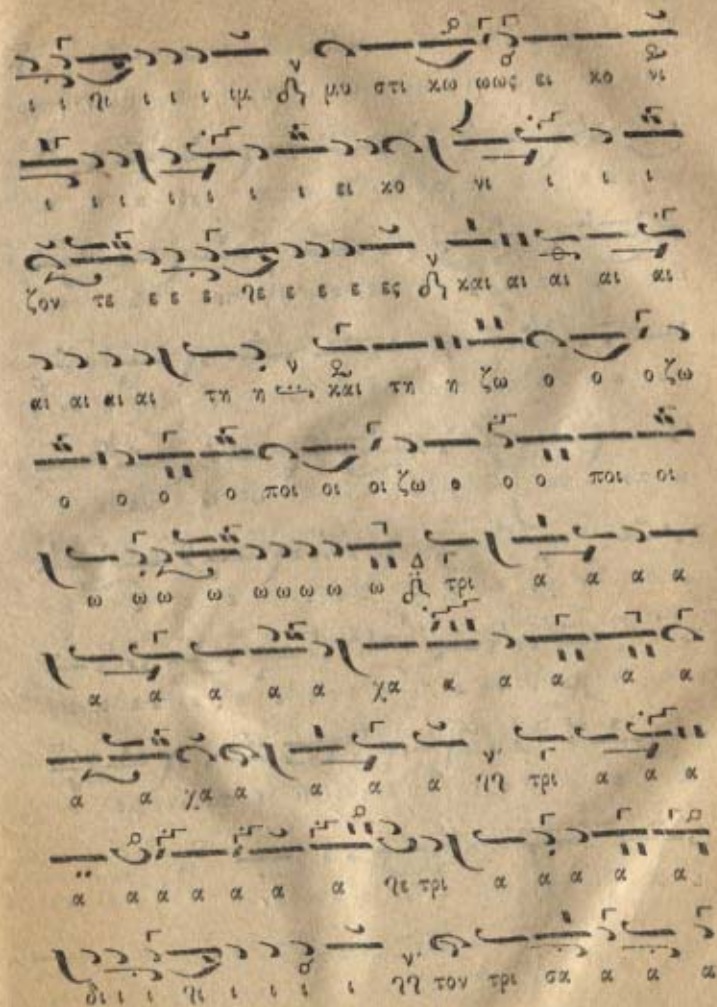 ι ι ι ι ι ιμ μυ στι κω ωως ει κο νι
ι ι ι ι ι ι ι ει κο νι ι ι ι
ζον τε ε ε ε ε ε ε ες και αι αι αι αι
αι αι αι αι τη η και τη η ζω ο ο ο ζω
ο ο ο ο ποι οι οι ζω ο ο ο ποι οι
ω ω ω ω ω ω ω ω ω τρι α α α α
α α α α α χα α α α α α
α α χα α α α α τρι α α α
α α α α α α α τρι α α α α α
δι ι ι ι ι ι ι τον τρι σα α α α